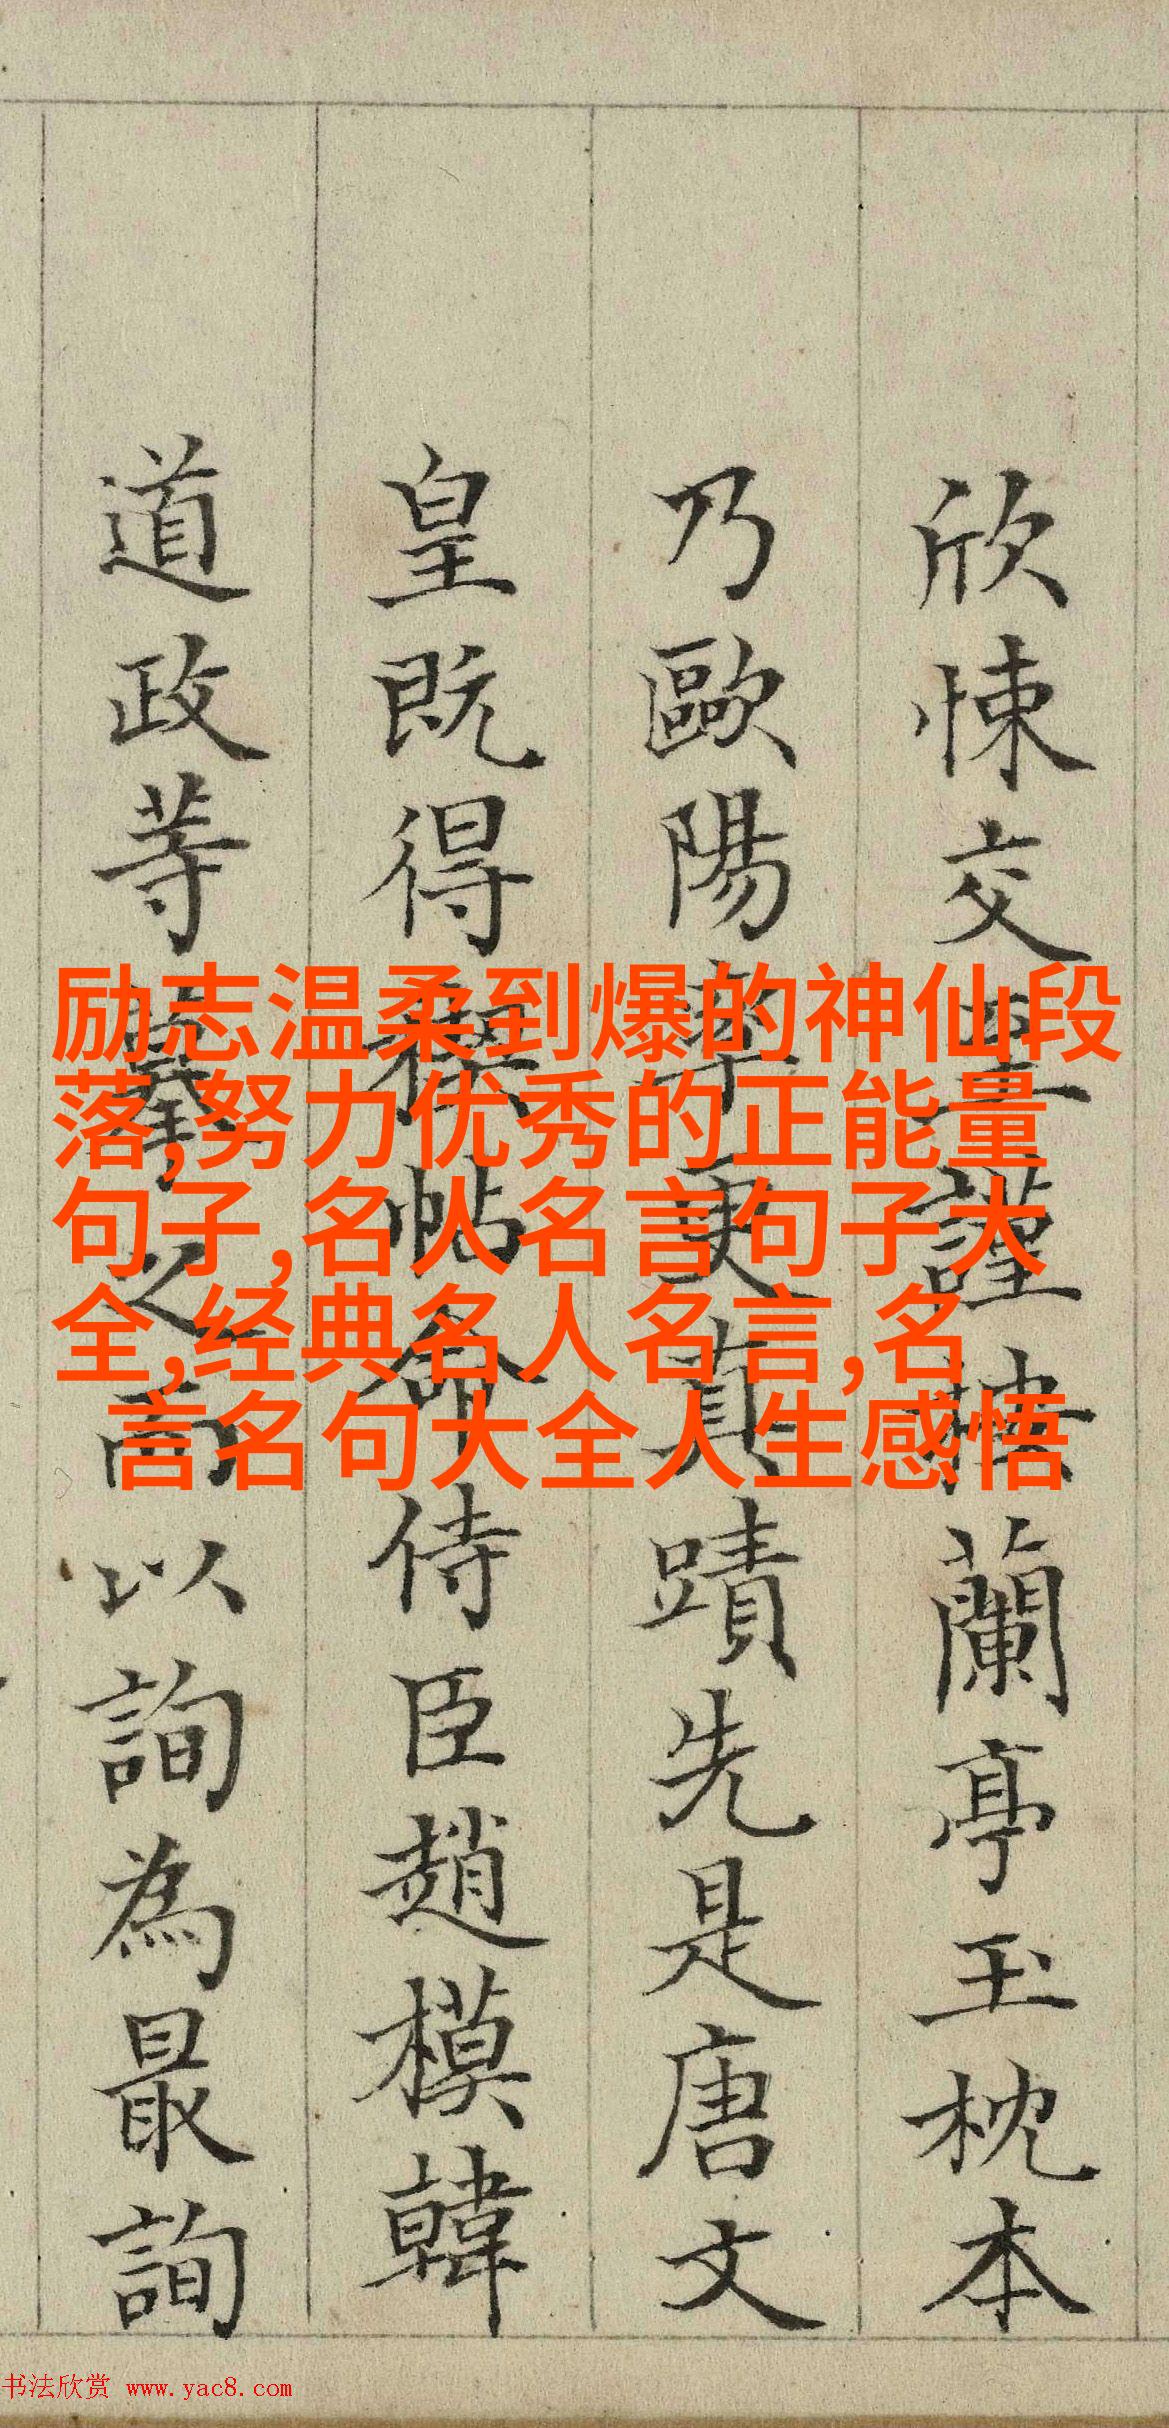 欣悚交至謹按蘭亭玉枕本
乃歐陽率更真蹟先是唐文
皇既得禊帖命侍臣趙模韓
道政等之而以詢為最詢
励志温柔到爆的神仙段
落,努力优秀的正能量
句子,名人名言句子大
全,经典名人名言,名
言名句大全人生感悟
书法欣赏 www.yac8.com